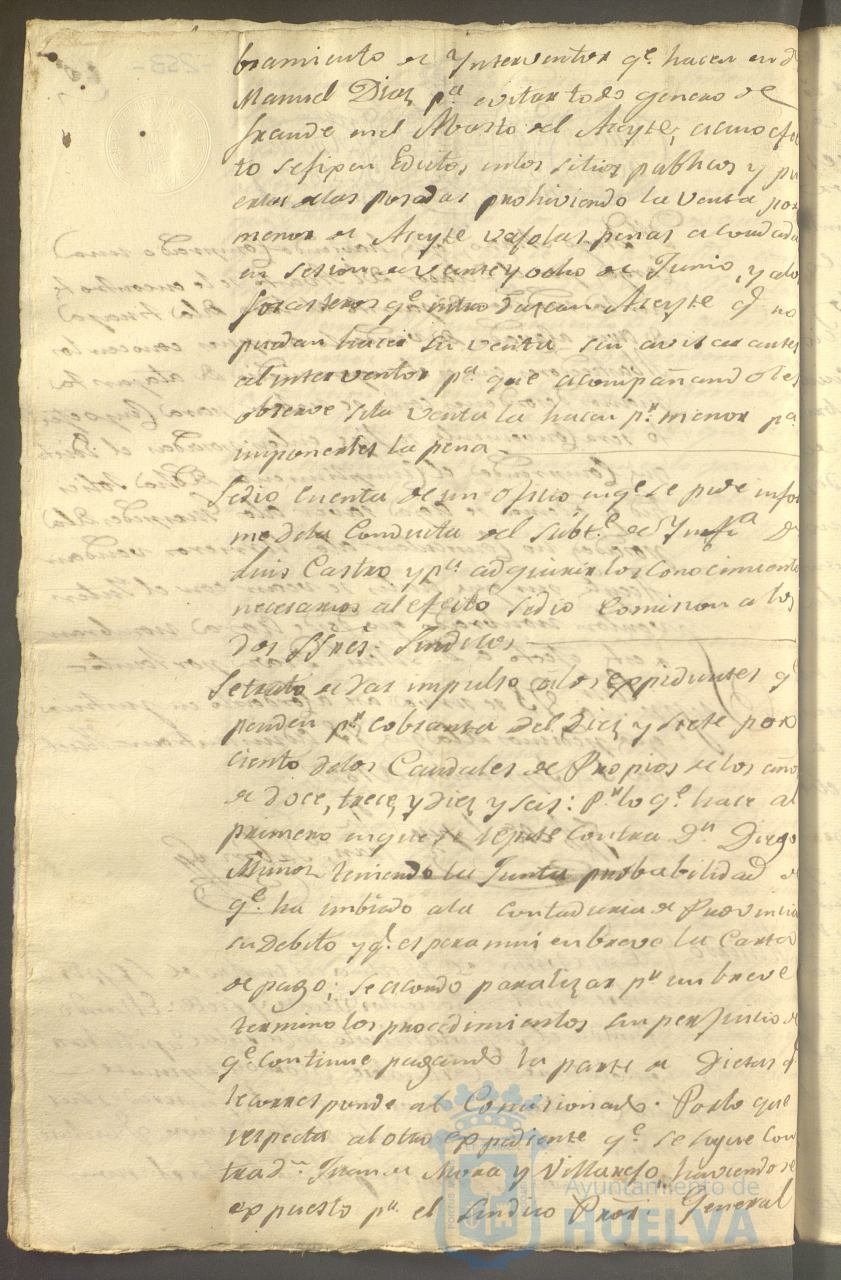 bramiento de Ynterventor qe. hacen en dn
Manuel Diaz pa. evitar todo genero de
fraude en el Abasto del Aceyte; a cuio efec
to se fixen Edictos en los sitios publicos y pu
ertas de las posadas prohiviendo la venta por
menor de Aceyte vajo las penas acordada
en sesion de veinte y ocho de Junio, y a los
forasteros qe. introduzcan Aceyte qe no
puedan hacer su venta sin avisar antes
al interventor pa. que acompañandoles
observe si la venta la hacen pr. menor pa.
imponerles la pena
Se dio cuenta de un oficio en qe. se pide infor
me de la Conducta del subte. de Ynfa. Dn
Luis Castro y pa. adquirir los conocimiento
necesarios al efecto se dio Comision a los
dos SSres. Sindicos
Se trato de dar impulso a los expedientes qe
penden pr. cobranza del Diez y siete por
ciento de los Caudales de Propios de los años
de doce, trece, y diez y seis: Pr. lo qe. hace al
primero en que se repite contra Dn. Diego
Muñoz teniendo la Junta probabilidad de
qe. ha imbiado a la contaduria de Provincia
su Debito y qe. espera mui en breve la Carta
de pago; se acordo paralizar pr. un breve
termino los procedimientos sin perjuicio de
qe. continue pagando la parte de Dietas qe
le corresponde al Comisionado. Por lo que
respecta al otro expediente qe. se sigue con
tra dn. Juan de Mora y Villarejo, haviendose
expuesto pr. el Sindico Pror. General
Ayuntamiento de
HUELVA